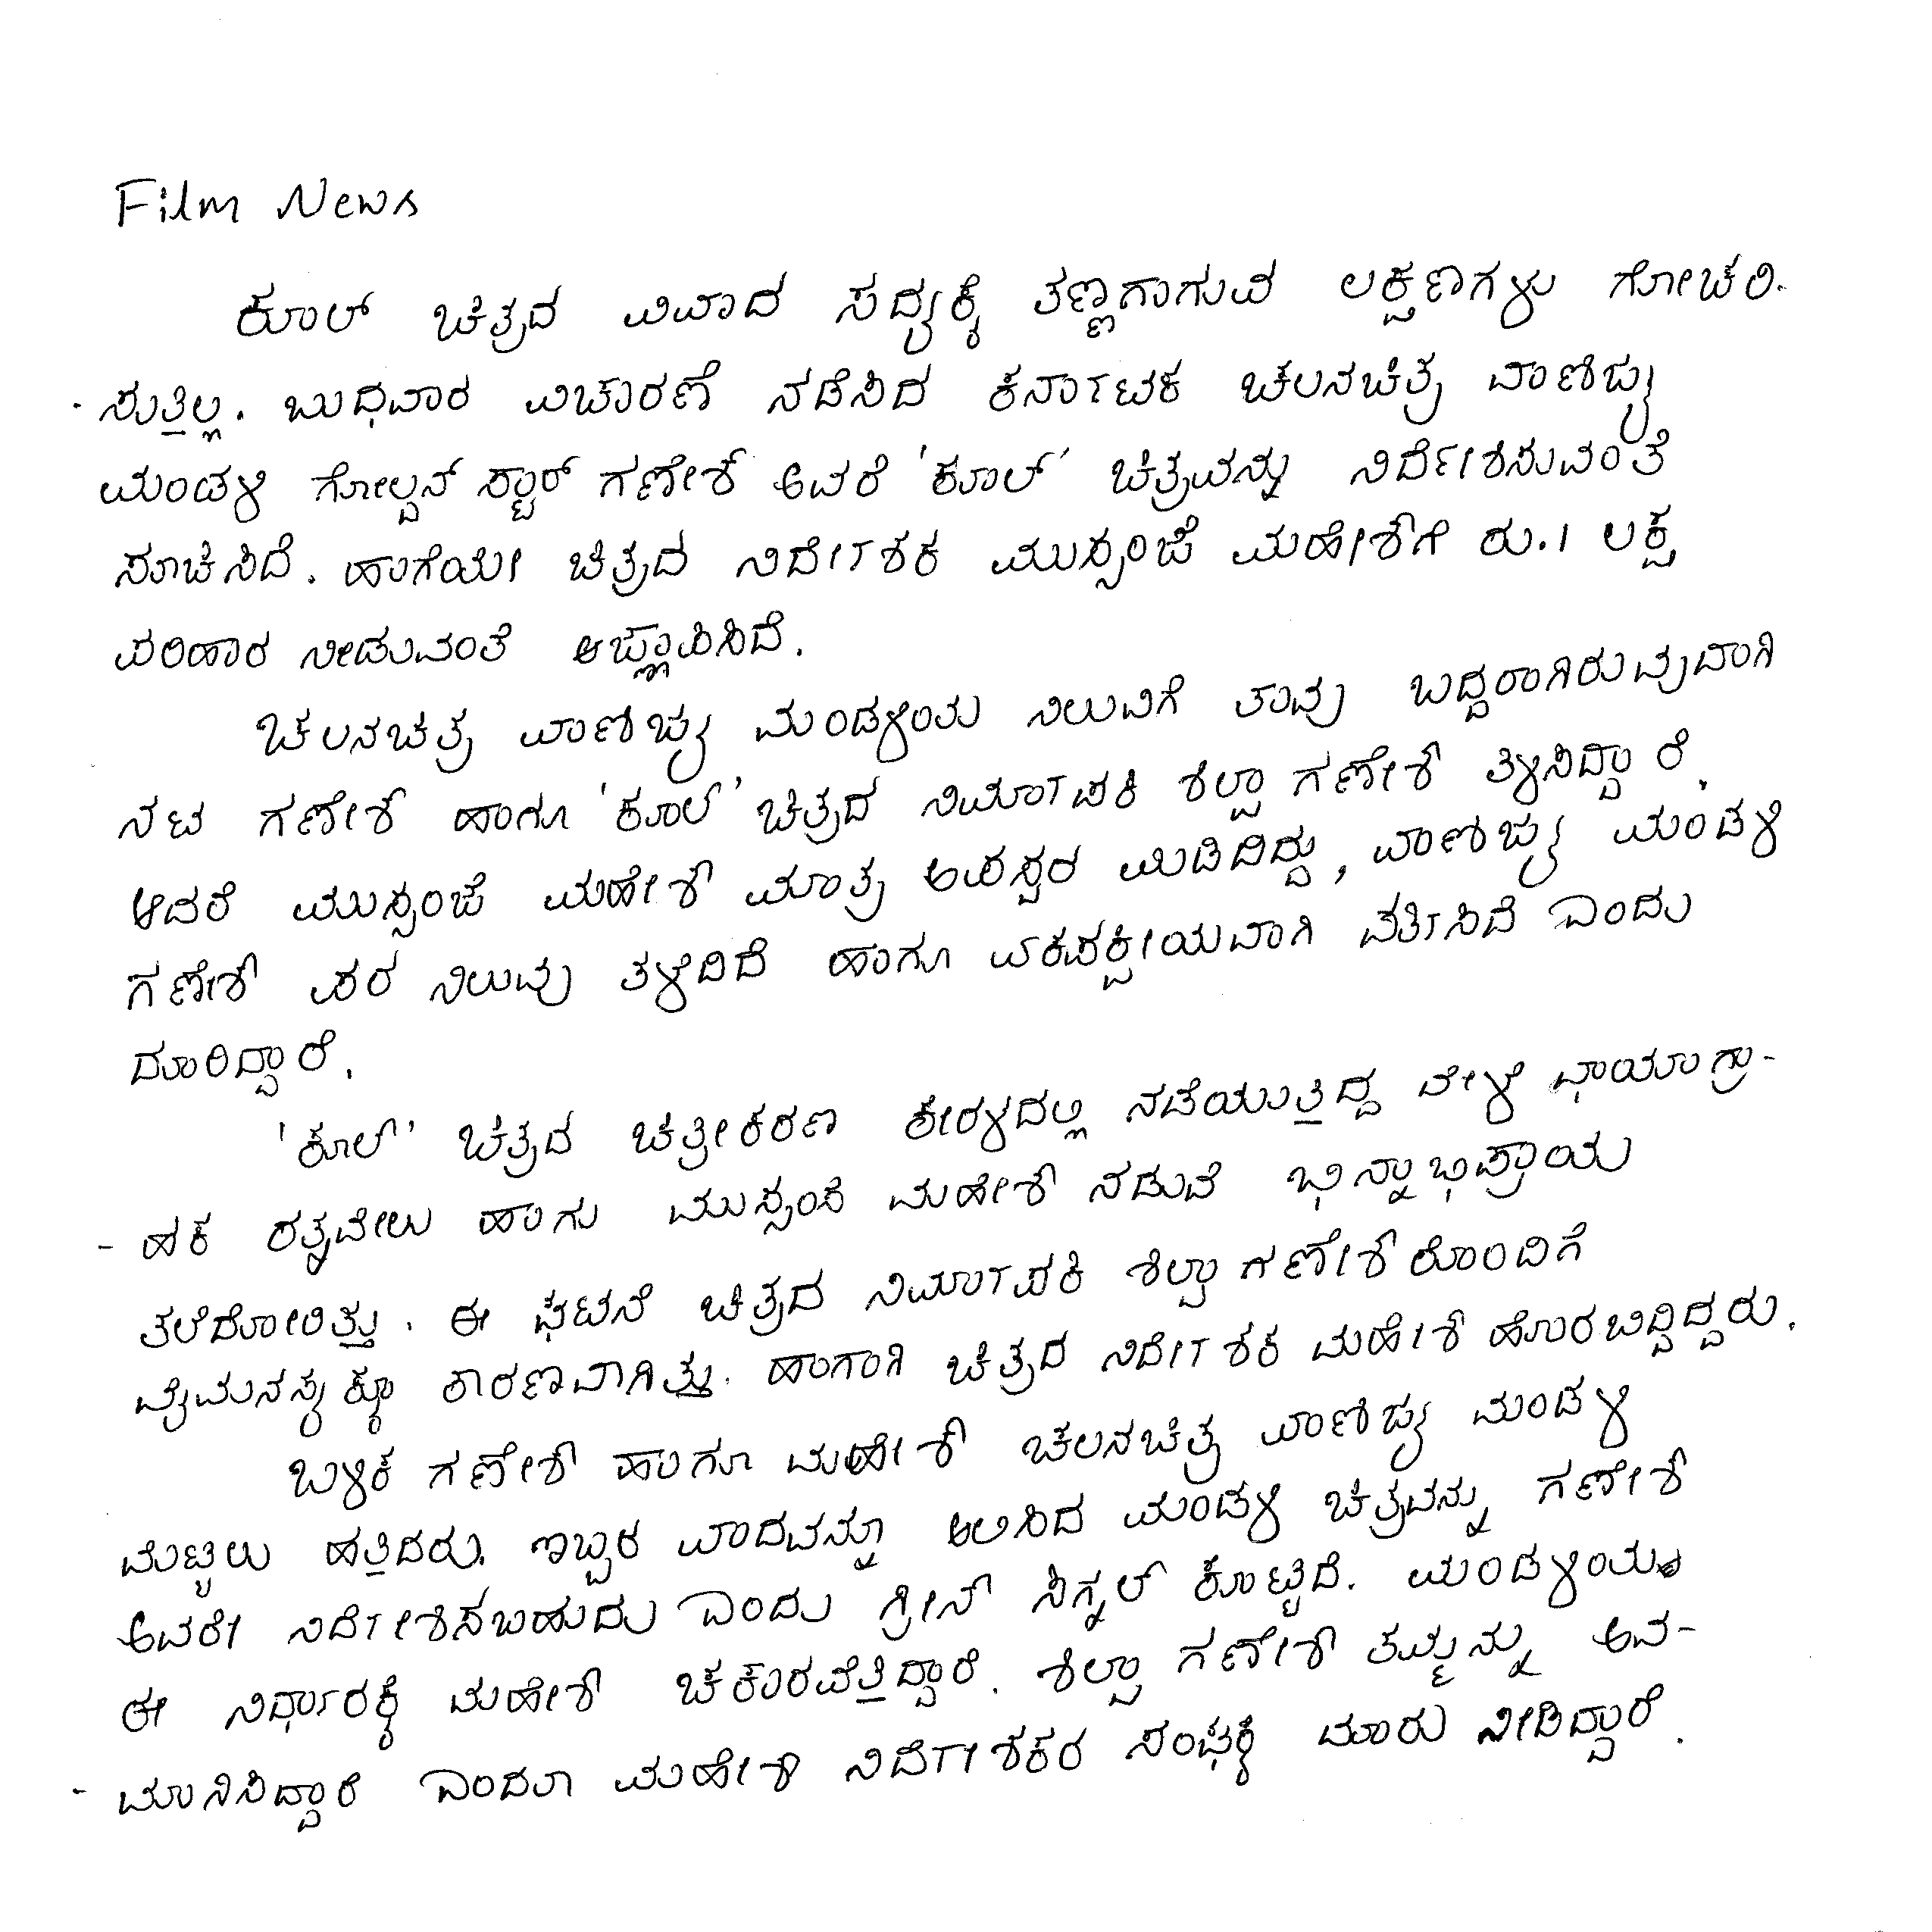 Film News
ಕೂಲ್ ಚಿತ್ರದ ವಿವಾದ ಸದ್ಯಕ್ಕೆ ತಣ್ಣಗಾಗುವ ಲಕ್ಷಣಗಳು ಗೋಚರಿ-
- ಸುತ್ತಿಲ್ಲ. ಬುಧವಾರ ವಿಚಾರಣೆ ನಡೆಸಿದ ಕರ್ನಾಟಕ ಚಲನಚಿತ್ರ ವಾಣಿಜ್ಯ
ಮಂಡಳಿ ಗೋಲ್ಡನ್ ಸ್ಟಾರ್ ಗಣೇಶ್ ಅವರೆ 'ಕೂಲ್' ಚಿತ್ರವನ್ನು ನಿರ್ದೇಶಿಸುವಂತೆ
ಸೂಚಿಸಿದೆ. ಹಾಗೆಯೇ ಚಿತ್ರದ ನಿರ್ದೇಶಕ ಮುಸ್ಸಂಜೆ ಮಹೇಶ್‌ಗೆ ರು.1 ಲಕ್ಷ
ಪರಿಹಾರ ನೀಡುವಂತೆ ಆಜ್ಞಾಪಿಸಿದೆ.
ಚಲನಚಿತ್ರ ವಾಣಿಜ್ಯ ಮಂಡಳಿಯ ನಿಲುವಿಗೆ ತಾವು ಬದ್ಧರಾಗಿರುವುದಾಗಿ
ನಟ ಗಣೇಶ್ ಹಾಗೂ 'ಕೂಲ್' ಚಿತ್ರದ ನಿರ್ಮಾಪಕಿ ಶಿಲ್ಪಾ ಗಣೇಶ್ ತಿಳಿಸಿದ್ದಾರೆ.
ಆದರೆ ಮುಸ್ಸಂಜೆ ಮಹೇಶ್ ಮಾತ್ರ ಅಪಸ್ವರ ಮಿಡಿದಿದ್ದು, ವಾಣಿಜ್ಯ ಮಂಡಳಿ
ಗಣೇಶ್ ಪರ ನಿಲುವು ತಳೆದಿದೆ ಹಾಗೂ ಏಕಪಕ್ಷೀಯವಾಗಿ ವರ್ತಿಸಿದೆ ಎಂದು
ದೂರಿದ್ದಾರೆ.
'ಕೂಲ್' ಚಿತ್ರದ ಚಿತ್ರೀಕರಣ ಕೇರಳದಲ್ಲಿ ನಡೆಯುತ್ತಿದ್ದ ವೇಳೆ ಛಾಯಾಗ್ರಾ-
- ಹಕ ರತ್ನವೇಲು ಹಾಗು ಮುಸ್ಸಂಜೆ ಮಹೇಶ್ ನಡುವೆ ಭಿನ್ನಾಭಿಪ್ರಾಯ
ತಲೆದೋರಿತ್ತು. ಈ ಘಟನೆ ಚಿತ್ರದ ನಿರ್ಮಾಪಕಿ ಶಿಲ್ಪಾ ಗಣೇಶ್ ರೊಂದಿಗೆ
ವೈಮನಸ್ಯಕ್ಕೂ ಕಾರಣವಾಗಿತ್ತು. ಹಾಗಾಗಿ ಚಿತ್ರದ ನಿರ್ದೇಶಕ ಮಹೇಶ್ ಹೊರಬಿದ್ದಿದ್ದರು.
ಬಳಿಕ ಗಣೇಶ್ ಹಾಗೂ ಮಹೇಶ್ ಚಲನಚಿತ್ರ ವಾಣಿಜ್ಯ ಮಂಡಳಿ
ಮೆಟ್ಟಿಲು ಹತ್ತಿದರು. ಇಬ್ಬರ ವಾದವನ್ನೂ ಆಲಿಸಿದ ಮಂಡಳಿ ಚಿತ್ರವನ್ನು ಗಣೇಶ್
ಅವರೇ ನಿರ್ದೇಶಿಸಬಹುದು ಎಂದು ಗ್ರೀನ್ ಸಿಗ್ನಲ್ ಕೊಟ್ಟಿದೆ. ಮಂಡಳಿಯ
ಈ ನಿರ್ಧಾರಕ್ಕೆ ಮಹೇಶ್ ಚಕಾರವೆತ್ತಿದ್ದಾರೆ. ಶಿಲ್ಪಾ ಗಣೇಶ್ ತಮ್ಮನ್ನು ಅವ-
- ಮಾನಿಸಿದ್ದಾರೆ ಎಂದೂ ಮಹೇಶ್ ನಿರ್ದೇಶಕರ ಸಂಘಕ್ಕೆ ದೂರು ನೀಡಿದ್ದಾರೆ.